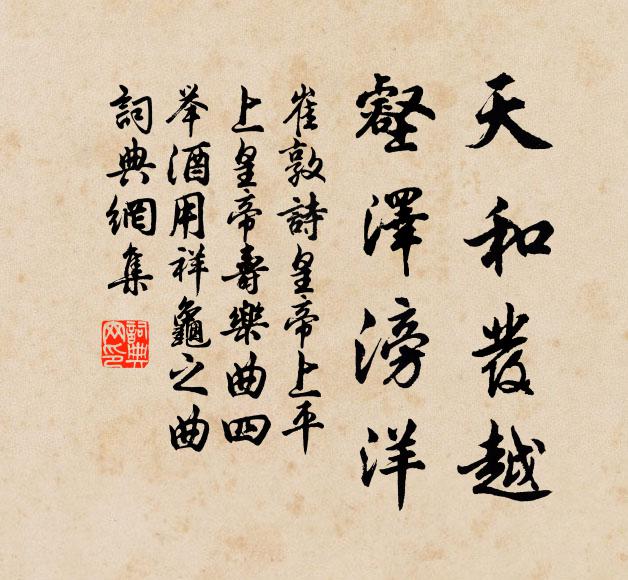 天和發越
壡澤滂洋
崔敦詩皇帝上平
上皇帝壽樂曲四
举酒用祥龜之曲
詞典網集
詞典
网印